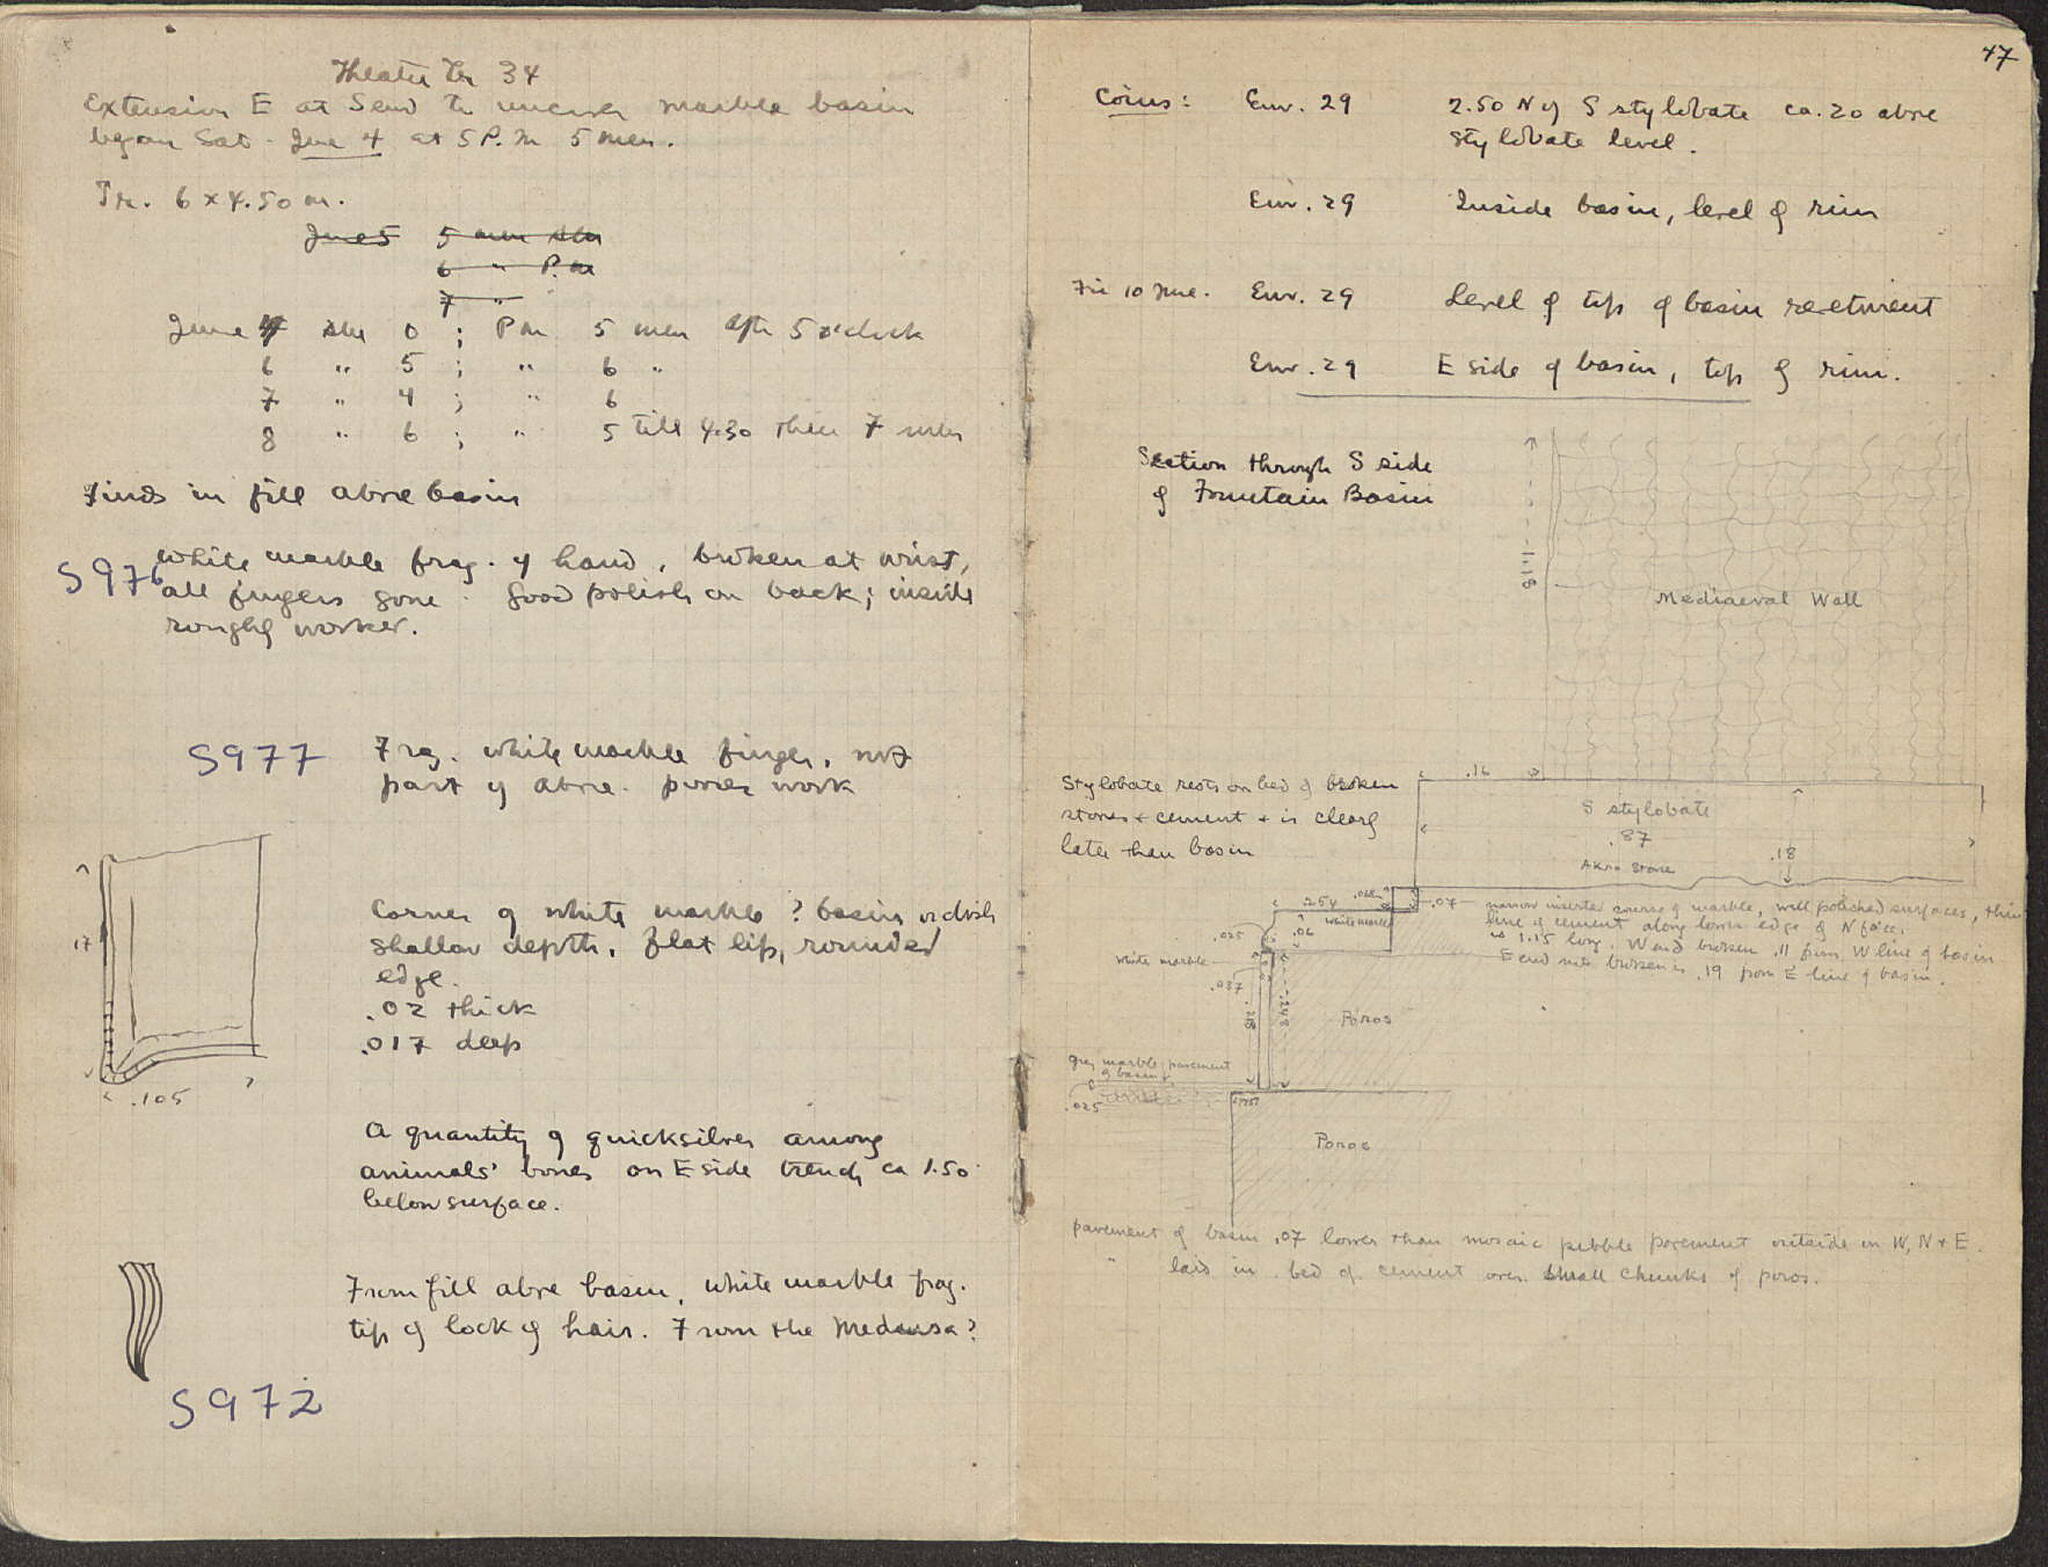 Theatre Tr 34
Extension E at S end to uncover marble basin
began Sat. June 4 at 5 P.M 5 men.
Tr. 6 x 4.50 m.
June 5 5 men AM
6 " P.M
7 "
June 4 AM 0 ; PM 5 men after 5 o'clock
6 " 5 ; " 6 "
7 " 4 ; " 6
8 " 6 ; " 5 till 4.30 then 7 men
Finds in fill above basin
S976
white marble frag. of hand, broken at wrist,
all fingers gone. Good polish on back; inside
roughly worked.
S977
Frag. white marble finger, not
part of above. poorer work
.17
.105
Corner of white marble ? basin or dish
shallow depth, flat lip, rounded
edge.
.02 thick
.017 deep
A quantity of quicksilver among
animals' bones on E side trench ca 1.50
below surface.
From fill above basin, white marble frag.
tip of lock of hair. From the Medusa?
S972
47
Coins: Env. 29 2.50 N of S stylobate ca. 20 above
stylobate level.
Env. 29 Inside basin, level of rim
Fri 10 June. Env. 29 Level of top of basin revetment
Env. 29 E side of basin, top of rim.
Section through S side
of Fountain Basin
1.18
Mediaeval Wall
.16
Stylobate rests on bed of broken
stones + cement + is clearly
later than basin
S stylobate
.87
.18
Akro stone
.254
.068
.07
narrow inserted course of marble, well polished surfaces, thin
line of cement along lower edge of N face.
is 1.15 long. W end broken .11 from W line of basin
E end not broken is .19 from E line of basin.
.025
.06
white marble
white marble
.037
.248
Poros
grey marble pavement
of basin
.025
Poros
pavement of basin .07 lower than mosaic pebble pavement outside on W, N + E.
" laid in bed of cement over small chunks of poros.